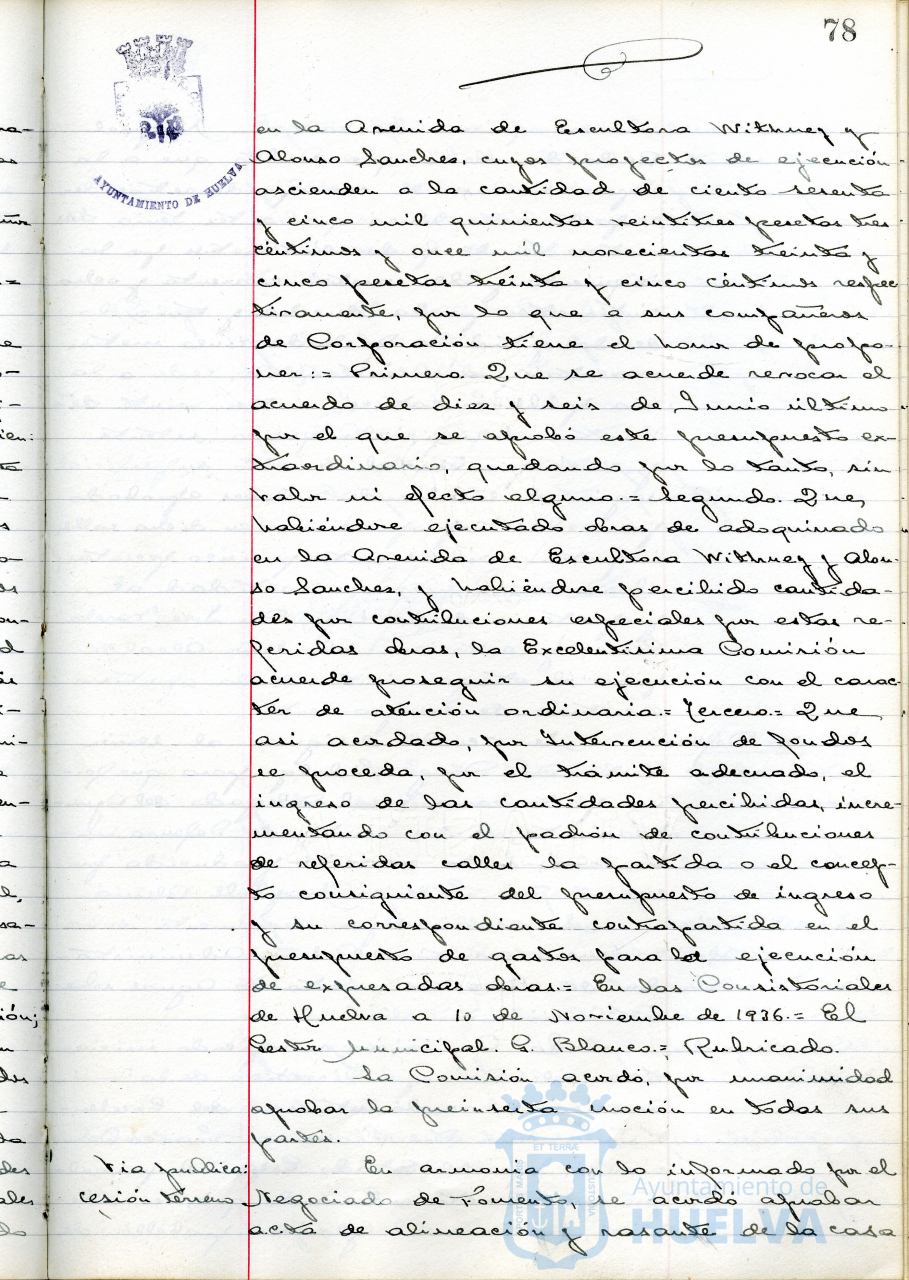 78
AYUNTAMIENTO DE HUELVA
en la Avenida de Escultora Withney y
Alonso Sanches, cuyos proyectos de ejecución
ascienden a la cantidad de ciento sesenta
y cinco mil quinientas veintitres pesetas tres
céntimos y once mil novecientas treinta y
cinco pesetas treinta y cinco céntimos respec
tivamente, por lo que a sus compañeros
de Corporación tiene el honor de propo-
ner:= Primero. Que se acuerde revocar el
acuerdo de diez y seis de Junio último
por el que se aprobó este presupuesto ex-
traordinario, quedando por lo tanto, sin
valor ni efecto alguno.= Segundo. Que,
habiéndose ejecutado obras de adoquinado
en la Avenida de Escultora Withney y Alon-
so Sanches, y habiéndose percibido cantida-
des por contribuciones especiales por estas re-
feridas obras, la Excelentísima Comisión
acuerde proseguir su ejecución con el carac-
ter de atención ordinaria.= Tercero.= Que
asi acordado, por Intervención de fondos
se proceda, por el trámite adecuado, el
ingreso de las cantidades percibidas, incre-
mentando con el padrón de contribuciones
de referidas calles la partida o el concep-
to consiguiente del presupuesto de ingreso
y su correspondiente contrapartida en el
presupuesto de gastos para la ejecución
de expresadas obras.= En las Consistoriales
de Huelva a 10 de Noviembre de 1936.= El
Gestor Municipal. G. Blanco.= Rubricado.
La Comisión acordó, por unanimidad
aprobar la preinserta moción en todas sus
partes.
Via publica:
cesión terreno.
En armonia con lo informado por el
Negociado de Fomento, se acordó aprobar
acta de alineación y rasante de la casa
Ayuntamiento de
HUELVA